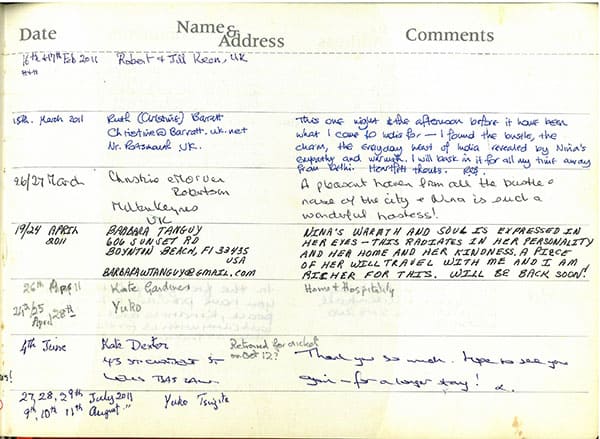 Date
Name & Address
Comments
16th & 17th Feb 2011
Robert & Jill Keen, UK
15th. March 2011
Ruth (Christine) Barratt
Christine@Barratt.uk.net
Nr. UK.
This one night & the afternoon before it have been
what I came to India for — I found the bustle, the
charm, the everyday heart of India revealed by Nina's
empathy and warmth. I will bask in it for all my time away
from Delhi. Heartfelt thanks.
26/27 March
Christine & Morven
Robertson
Milton Keynes
UK
A pleasant haven from all the bustle &
of the city & Nina is such a
wonderful hostess!
19/24 APRIL
2011
BARBARA TANGUY
606 SUNSET RD
BOYNTON BEACH, Fl 33435
USA
BARBARAWTANGUY@GMAIL.COM
NINA'S WARMTH AND SOUL IS EXPRESSED IN
HER EYES — THIS RADIATES IN HER PERSONALITY
AND HER HOME AND HER KINDNESS. A PIECE
OF HER WILL TRAVEL WITH ME AND I AM
RICHER FOR THIS. WILL BE BACK SOON!
26th Apr 11
Kate Gardner
Home & Hospitality
April 28th
Yuko
4th June
Kate Dexter
Returned for cricket
on Oct 12?
43 St.
Thank you so much. Hope to see you
again — for a longer stay!
27, 28, 29th July 2011
9th, 10th 11th August "
Yuko